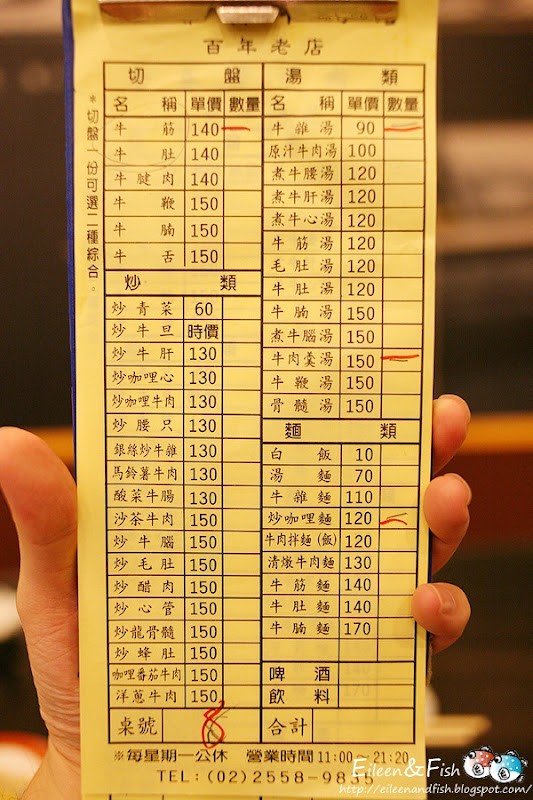 百年老店
*切盤一份可選二種綜合。
切盤
名稱 單價 數量
牛筋 140
牛肚 140
牛腱肉 140
牛鞭 150
牛腩 150
牛舌 150
炒類
炒青菜 60
炒牛旦 時價
炒牛肝 130
炒咖哩心 130
炒咖哩牛肉 130
炒腰只 130
銀絲炒牛雜 130
馬鈴薯牛肉 130
酸菜牛腸 130
沙茶牛肉 150
炒牛腦 150
炒毛肚 150
炒醋肉 150
炒心管 150
炒龍骨髓 150
炒蜂肚 150
咖哩番茄牛肉 150
洋蔥牛肉 150
桌號 8
湯類
名稱 單價 數量
牛雜湯 90
原汁牛肉湯 100
煮牛腰湯 120
煮牛肝湯 120
煮牛心湯 120
牛筋湯 120
毛肚湯 120
牛肚湯 120
牛腩湯 150
煮牛腦湯 150
牛肉羹湯 150
牛鞭湯 150
骨髓湯 150
麵類
白飯 10
湯麵 70
牛雜麵 110
炒咖哩麵 120
牛肉拌麵(飯) 120
清燉牛肉麵 130
牛筋麵 140
牛肚麵 140
牛腩麵 170
啤酒
飲料
合計
※每星期一公休 營業時間11:00~21:20
TEL:(02)2558-98
Eileen&Fish
http://eileenandfish.blogspot.com/